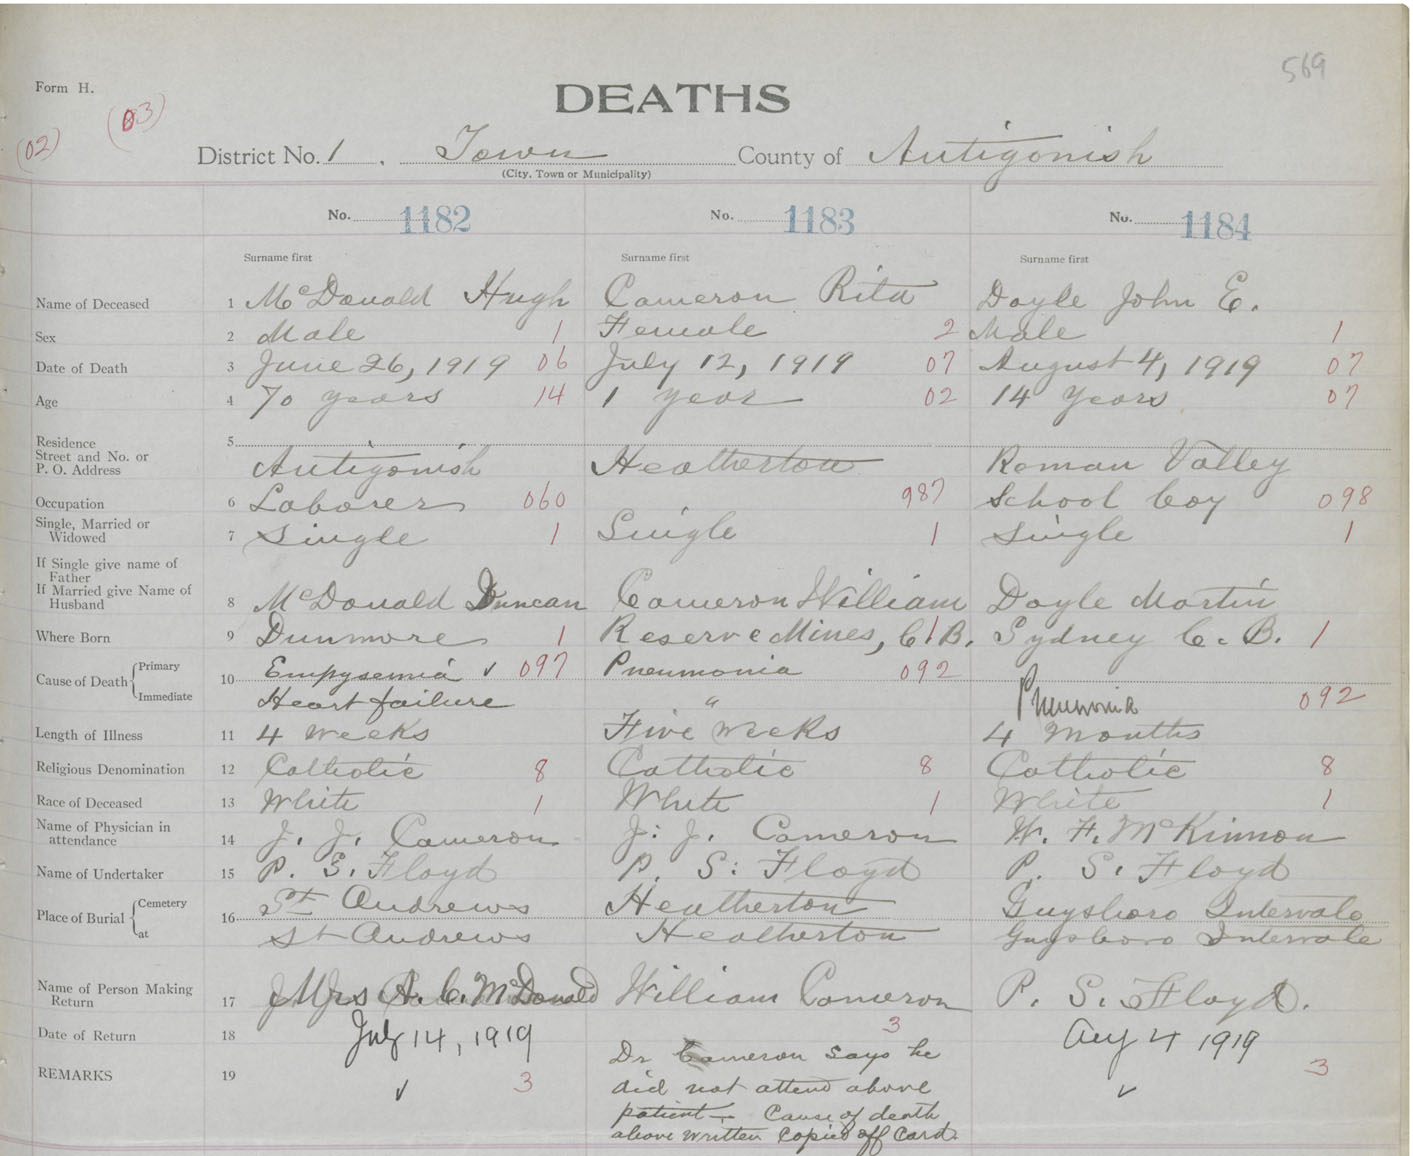 569
Form H.
DEATHS
(02) (03)
District No. 1. Town County of Antigonish
(City, Town or Municipality)
No. 1182 No. 1183 No. 1184
Surname first Surname first Surname first
Name of Deceased 1 McDonald Hugh Cameron Rita Doyle John E.
Sex 2 Male 1 Female 2 Male 1
Date of Death 3 June 26, 1919 06 July 12, 1919 07 August 4, 1919 07
Age 4 70 years 14 1 year 02 14 Years 07
Residence 5
Street and No. or
P. O. Address Antigonish Heatherton Roman Valley
Occupation 6 Laborer 060 987 School boy 098
Single, Married or
Widowed 7 Single 1 Single 1 Single 1
If Single give name of
Father
If Married give Name of
Husband 8 McDonald Duncan Cameron William Doyle Martin
Where Born 9 Dunmore 1 Reserve Mines, C. B. 1 Sydney C. B. 1
Cause of Death Primary 10 Empysemia ✓ 097 Pneumonia 092
Immediate Heart failure " Pneumonia 092
Length of Illness 11 4 weeks Five weeks 4 Months
Religious Denomination 12 Catholic 8 Catholic 8 Catholic 8
Race of Deceased 13 White 1 White 1 White 1
Name of Physician in
attendance 14 J. J. Cameron J. J. Cameron W. F. McKinnon
Name of Undertaker 15 P. S. Floyd P. S. Floyd P. S. Floyd
Place of Burial Cemetery 16 St Andrews Heatherton Guysboro Intervale
at St Andrews Heatherton Guysboro Intervale
Name of Person Making
Return 17 Mrs A. C. McDonald William Cameron P. S. Floyd.
Date of Return 18 July 14, 1919 3 Aug 4 1919
REMARKS 19 ✓ 3 Dr Cameron says he ✓ 3
did not attend above
patient — Cause of death
above written copied off card.